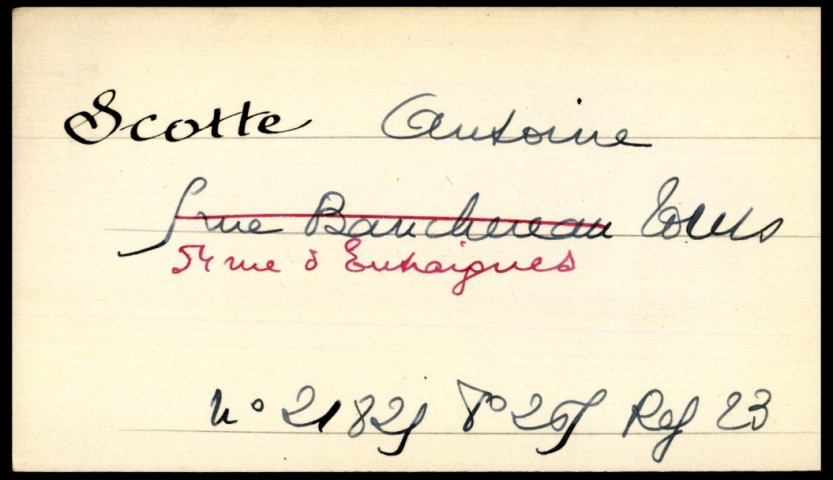 Scotte Antoine
5 rue Bauchereau Tours
54 rue d Entraigues
N° 21825 F° 265 Reg 23